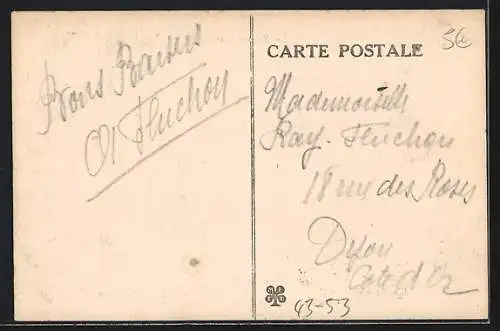 Bons Baisers
CARTE POSTALE
Mademoiselle
Ray. Fluchon
18 rue des Roses
Dijon
Cote d'Or
43-53